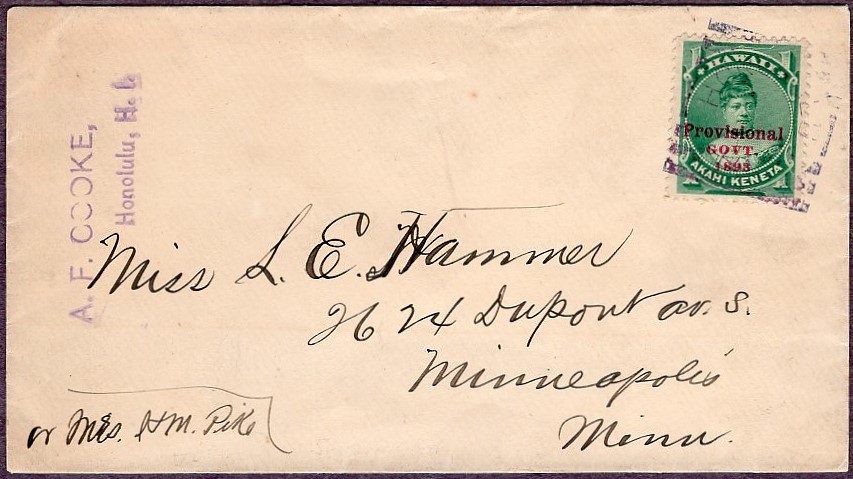 A. F. COOKE,
Honolulu, H. I.
HAWAII
Provisional
GOVT.
1893
AKAHI KENETA
1 1
Miss L. E. Hammer
2624 Dupont av. S.
Minneapolis
Minn.
or Mrs. H M. Pike